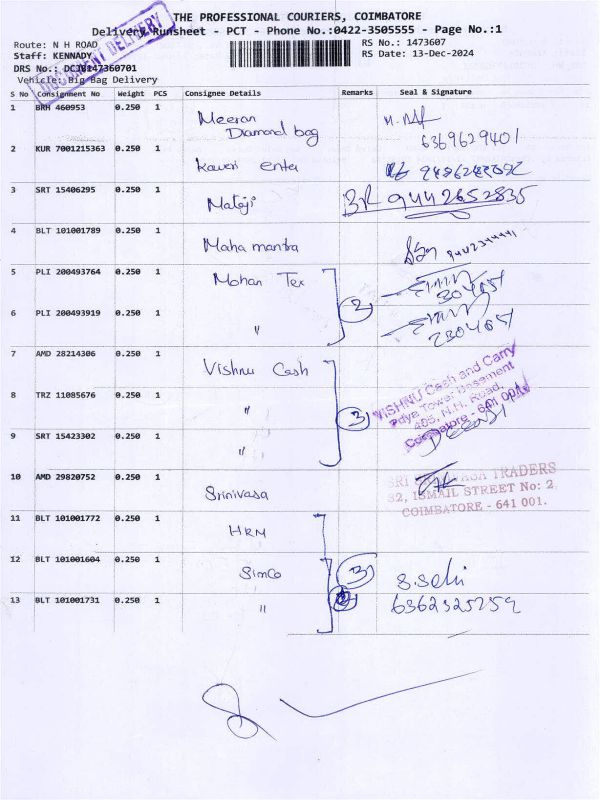 THE PROFESSIONAL COURIERS, COIMBATORE
Delivery Runsheet - PCT - Phone No.:0422-3505555 - Page No.:1
DOCUMENT DELIVERY
Route: N H ROAD
RS No.: 1473607
Staff: KENNADY
RS Date: 13-Dec-2024
DRS No.:
Vehicle: Big Bag Delivery
S No Consignment No Weight PCS Consignee Details Remarks Seal & Signature
1 BRH 460953 0.250 1 Meeran
Diamond bag
6369629401
2 KUR 7001215363 0.250 1 Kaveri Enter
3 SRT 15406295 0.250 1 9442652835
4 BLT 101001789 0.250 1 Maha mantra
5 PLI 200493764 0.250 1 Mohan Tex
2
6 PLI 200493919 0.250 1 "
2304051
7 AMD 28214306 0.250 1 Vishnu Cash
8 TRZ 11085676 0.250 1 "
3
VISHNU Cash and Carry
Tower Basement
N.H. Road,
Coimbatore - 641 001.
9 SRT 15423302 0.250 1 "
10 AMD 29820752 0.250 1 Srinivasa
SRI SRINIVASA TRADERS
32, ISMAIL STREET No: 2,
COIMBATORE - 641 001.
11 BLT 101001772 0.250 1 HRM
12 BLT 101001604 0.250 1 Simco
3
13 BLT 101001731 0.250 1 "